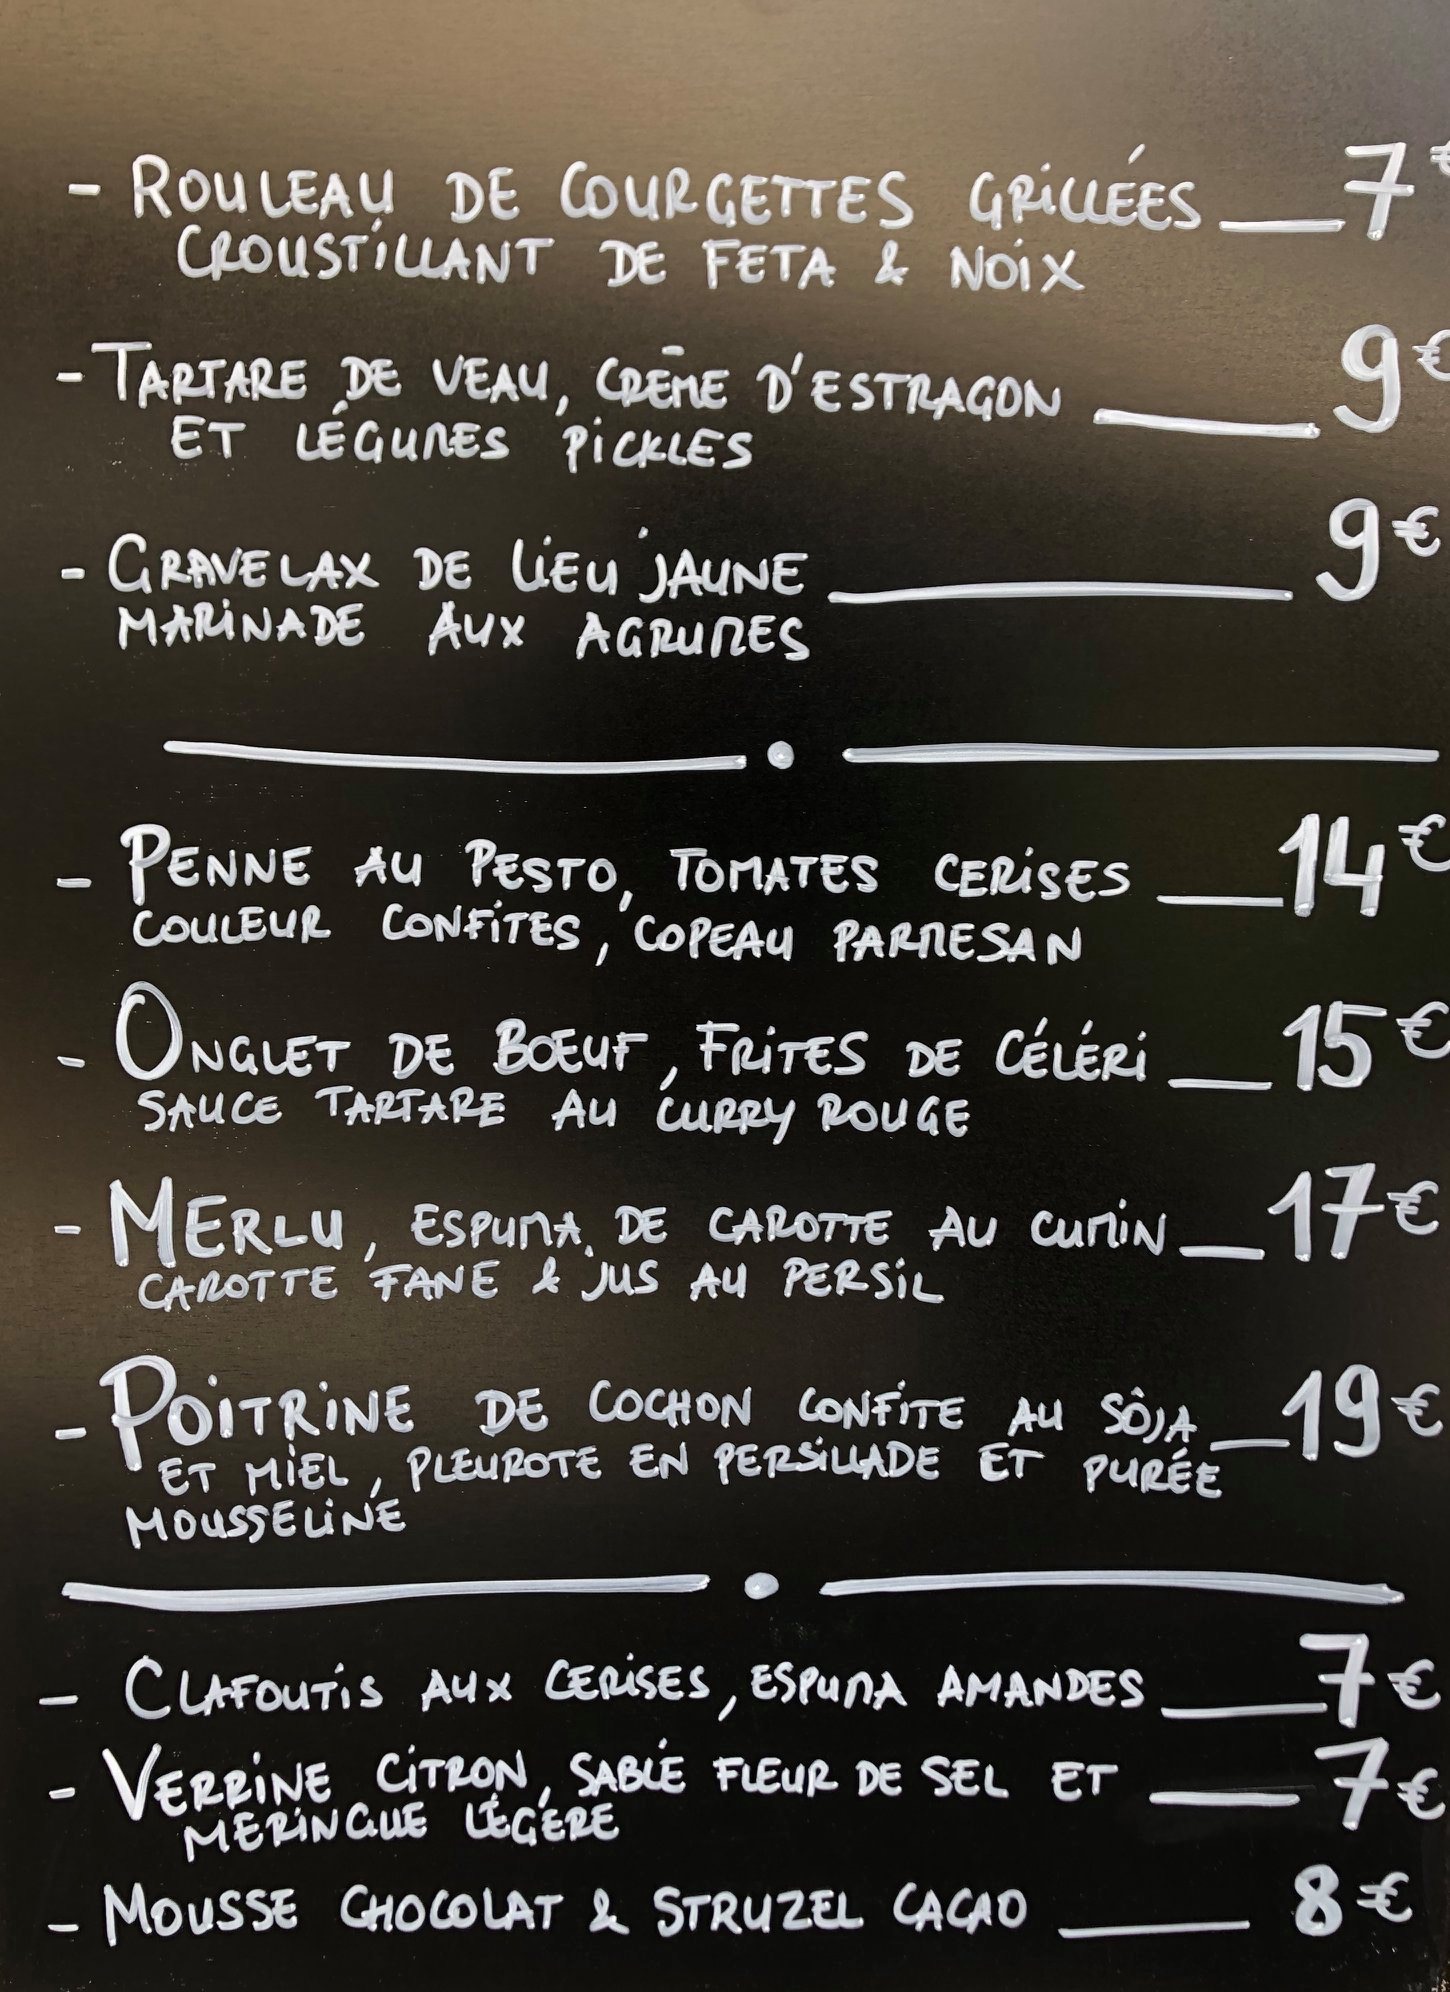 - ROULEAU DE COURGETTES GRILLÉES __ 7€
CROUSTILLANT DE FETA & NOIX
- TARTARE DE VEAU, CRÊME D'ESTRAGON __ 9€
ET LÉGUMES PICKLES
- GRAVELAX DE LIEU JAUNE __ 9€
MARINADE AUX AGRUMES
- PENNE AU PESTO, TOMATES CERISES __ 14€
COULEUR CONFITES, COPEAU PARMESAN
- ONGLET DE BOEUF, FRITES DE CÉLÉRI __ 15€
SAUCE TARTARE AU CURRY ROUGE
- MERLU, ESPUMA DE CAROTTE AU CUMIN __ 17€
CAROTTE FANE & JUS AU PERSIL
- POITRINE DE COCHON CONFITE AU SÔJA __ 19€
ET MIEL, PLEUROTE EN PERSILLADE ET PURÉE
MOUSSELINE
- CLAFOUTIS AUX CERISES, ESPUMA AMANDES __ 7€
- VERRINE CITRON, SABLÉ FLEUR DE SEL ET __ 7€
MERINGUE LÉGÈRE
- MOUSSE CHOCOLAT & STRUZEL CACAO __ 8€